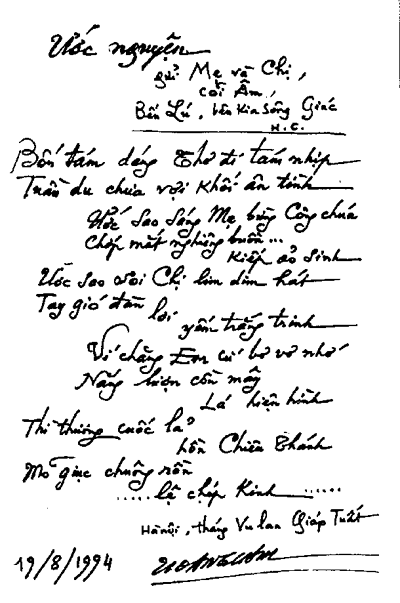 Ước nguyện
gửi Mẹ và Chị,
cõi Âm,
Bến Lú, bên kia Sông Giác
H.C.
Bốn tám dáng Thơ đi tám nhịp
Trần du chưa vợi khối ân tình
Ước sao sáng Mẹ bừng Công chúa
Chớp mắt nghiêng buồn ...
Kiếp ảo sinh
Ước sao soi Chị lim dim hát
Tay gió đàn lơi
yếm trắng trinh
Ví chăng Em cứ bơ vơ nhớ
Nắng lượn cồn mây
Lá hiện hình
Thi thương cuốc lả
hồn Chiêu Thánh
Mõ giục chuông rền
..... lệ chép Kinh ......
Hà nội, tháng Vu lan Giáp Tuất
19/8/1994